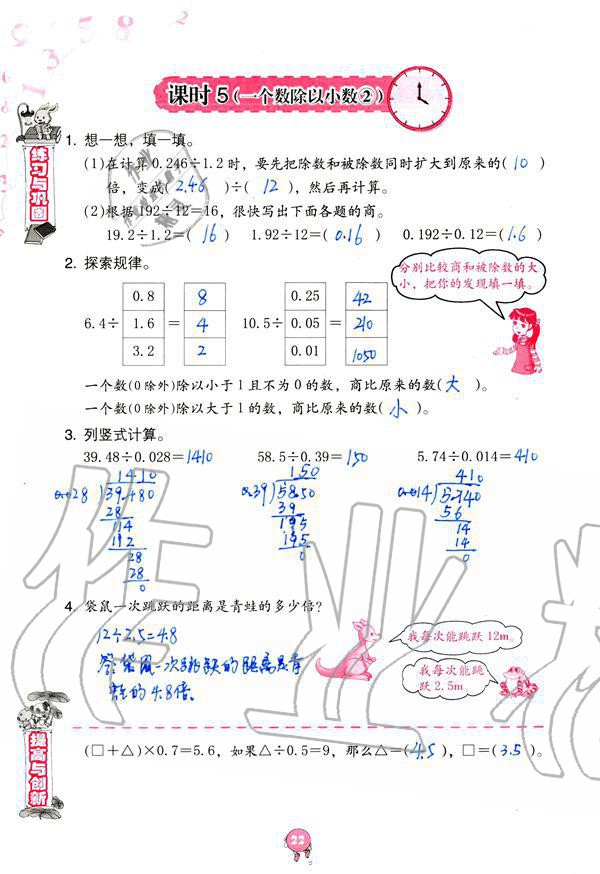 课时 5(一个数除以小数②)
练习与巩固
1. 想一想，填一填。
(1)在计算 0.246÷1.2 时，要先把除数和被除数同时扩大到原来的( 10 )
倍，变成( 2.46 )÷( 12 )，然后再计算。
(2)根据 192÷12=16，很快写出下面各题的商。
19.2÷1.2=( 16 ) 1.92÷12=( 0.16 ) 0.192÷0.12=( 1.6 )
2. 探索规律。
分别比较商和被除数的大
小，把你的发现填一填。
0.8 8 0.25 42
6.4÷ 1.6 = 4 10.5÷ 0.05 = 210
3.2 2 0.01 1050
一个数(0 除外)除以小于 1 且不为 0 的数，商比原来的数( 大 )。
一个数(0 除外)除以大于 1 的数，商比原来的数( 小 )。
3. 列竖式计算。
39.48÷0.028=1410 58.5÷0.39=150 5.74÷0.014=410
1410 150 410
0.028 39.480 0.39 58.50 0.014 5.740
28 39 56
114 195 14
112 195 14
28 0 0
28
0
4. 袋鼠一次跳跃的距离是青蛙的多少倍？
12÷2.5=4.8
我每次能跳跃 12m。
答:袋鼠一次跳跃的距离是青
蛙的4.8倍.
我每次能跳
跃 2.5m。
作业
提高与创新
(□+△)×0.7=5.6，如果△÷0.5=9，那么△=( 4.5 )，□=( 3.5 )。
22